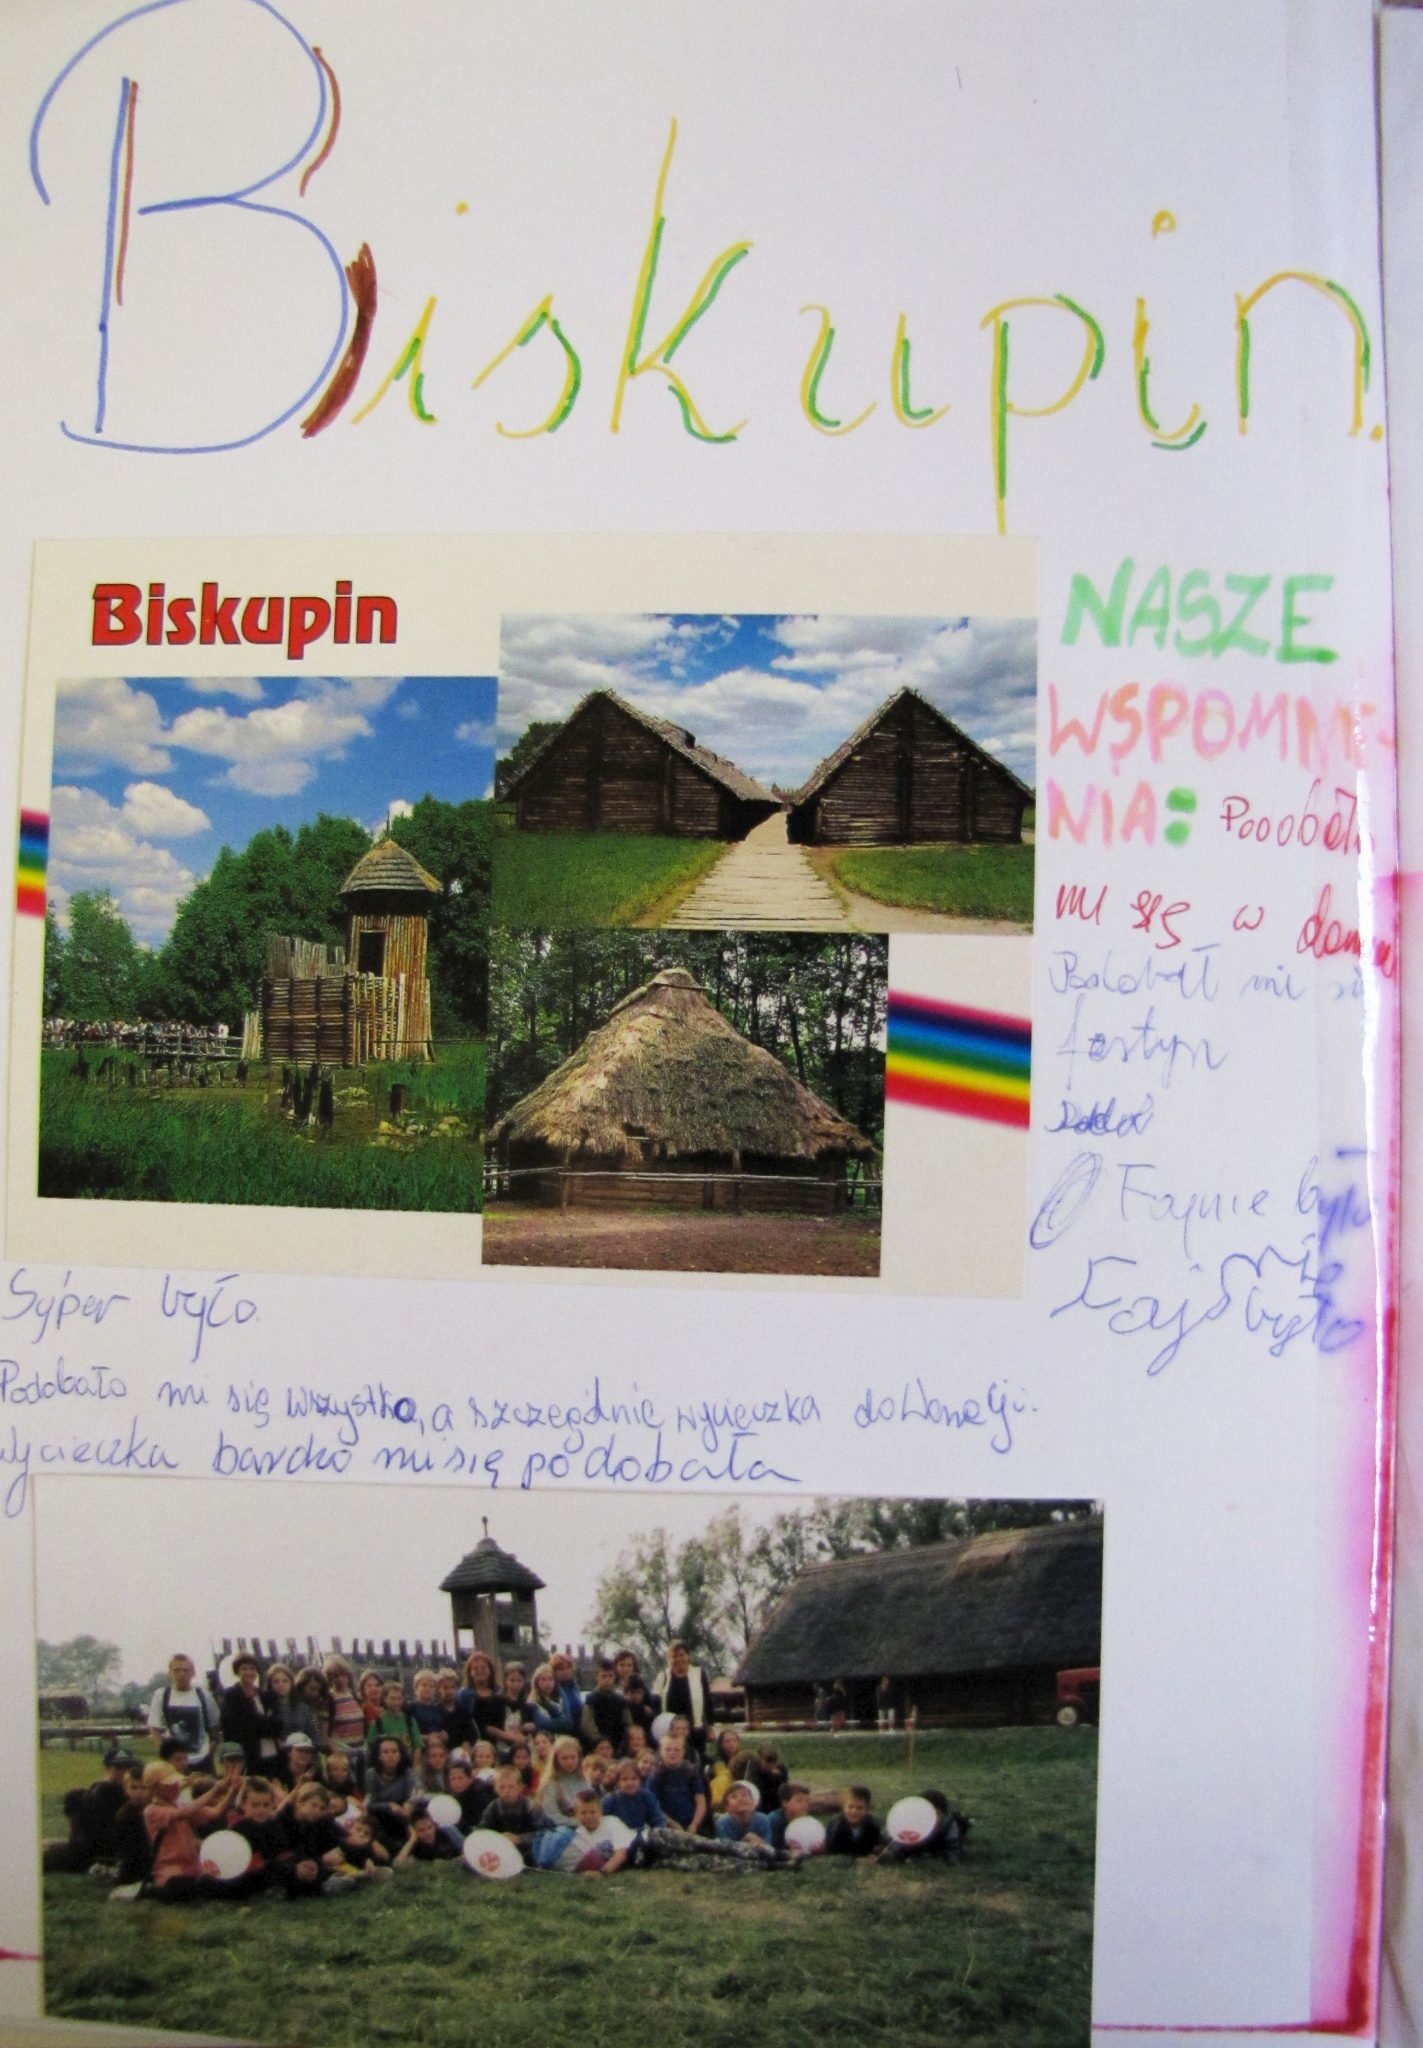 Biskupin.
Biskupin
NASZE
WSPOMNIE-
NIA: Podobało
mi się w
Podobał mi się
festyn
Fajnie było
Fajnie
było
Syper było.
Podobało mi się wszystko, a szczególnie wycieczka do Wenecji.
Wycieczka bardzo mi się podobała